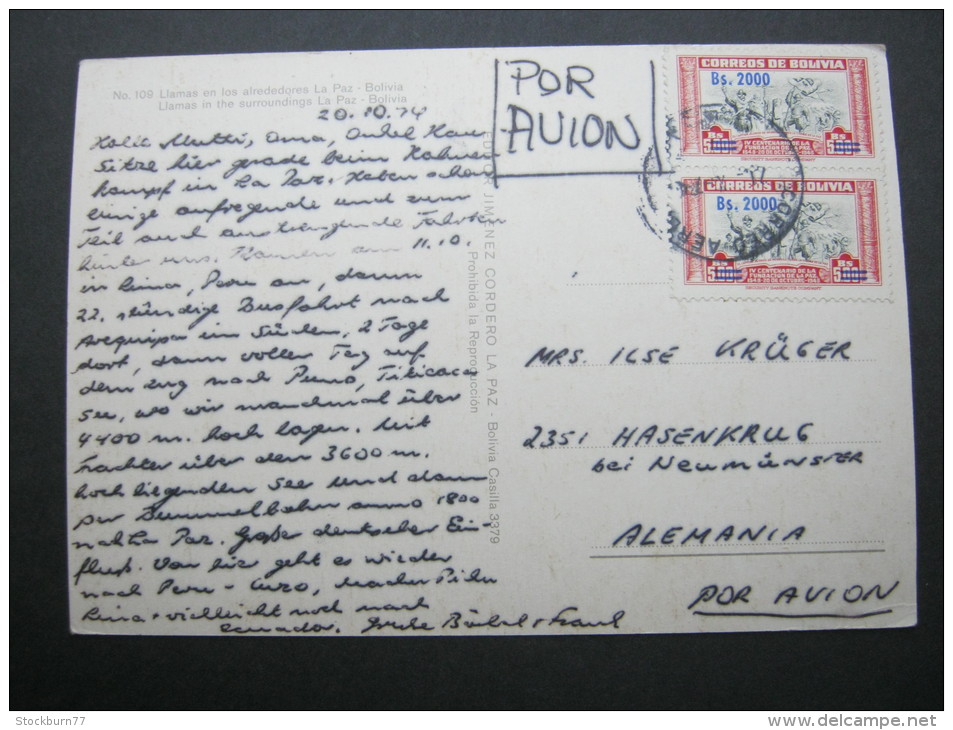 No. 109 Llamas en los alrededores La Paz - Bolivia
Llamas in the surroundings La Paz - Bolivia
20.10.74
Hallo Mutti, Oma, Onkel Hans
Sitze hier grade beim Hahnen-
kampf in La Paz. Haben schon
einige aufregende und zum
Teil auch anstrengende Fahrten
hinter uns. Kamen am 11.10.
in Lima, Peru an, dann
22. stündige Busfahrt nach
Arequipa im Süden, 2 Tage
dort, dann voller Tag auf
dem Zug nach Puno, Titicaca
See, wo wir manchmal über
4400 m. hoch lagen. Mit
Frachter über den 3600 m.
hoch liegenden See und dann
per Bummelbahn anno 1800
nach La Paz. Großer deutscher Ein-
fluß. Von hier geht es wieder
nach Peru - Cuzco, Machu Pichu
Lima + vielleicht noch nach
Ecuador. Grüße Bärbel + Frank
EDITOR JIMENEZ CORDERO LA PAZ - Bolivia Casilla 3379
Prohibida la Reproducción
POR
AVION
CORREOS DE BOLIVIA
Bs. 2000
Bs
Bs
IV CENTENARIO DE LA
FUNDACION DE LA PAZ
1548-20 DE OCTUBRE-1948
CORREOS DE BOLIVIA
Bs. 2000
Bs
Bs
IV CENTENARIO DE LA
FUNDACION DE LA PAZ
1548-20 DE OCTUBRE-1948
CORREO AEREO
MRS. ILSE KRÜGER
2351 HASENKRUG
bei NEUMÜNSTER
ALEMANIA
POR AVION
Stockburn77
www.delcampe.net